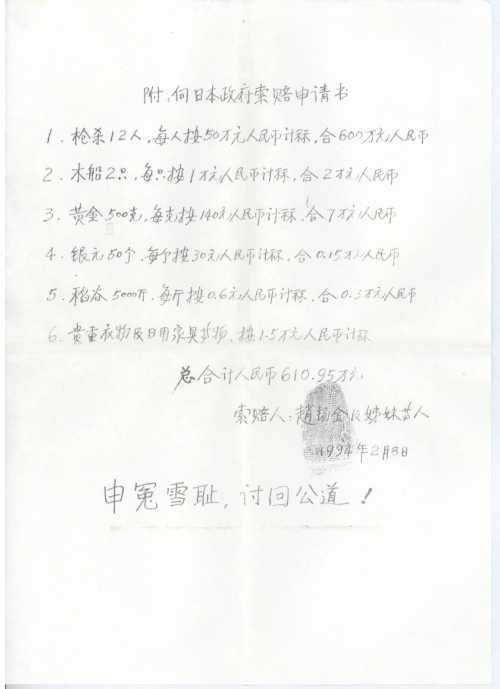 附:向日本政府索赔申请书
1. 枪杀12人,每人按50万元人民币计称,合600万元人民币
2. 木船2只,每只按1万元人民币计称,合2万元人民币
3. 黄金500克,每克按140元人民币计称,合7万元人民币
4. 银元50个,每个按30元人民币计称,合0.15万元人民币
5. 稻谷5000斤,每斤按0.6元人民币计称,合0.3万元人民币
6. 贵重衣物及日用家具药物,按1.5万元人民币计称
总合计人民币610.95万元
索赔人:趙 金 姊妹 人
1994年2月8日
申冤雪耻,讨回公道!